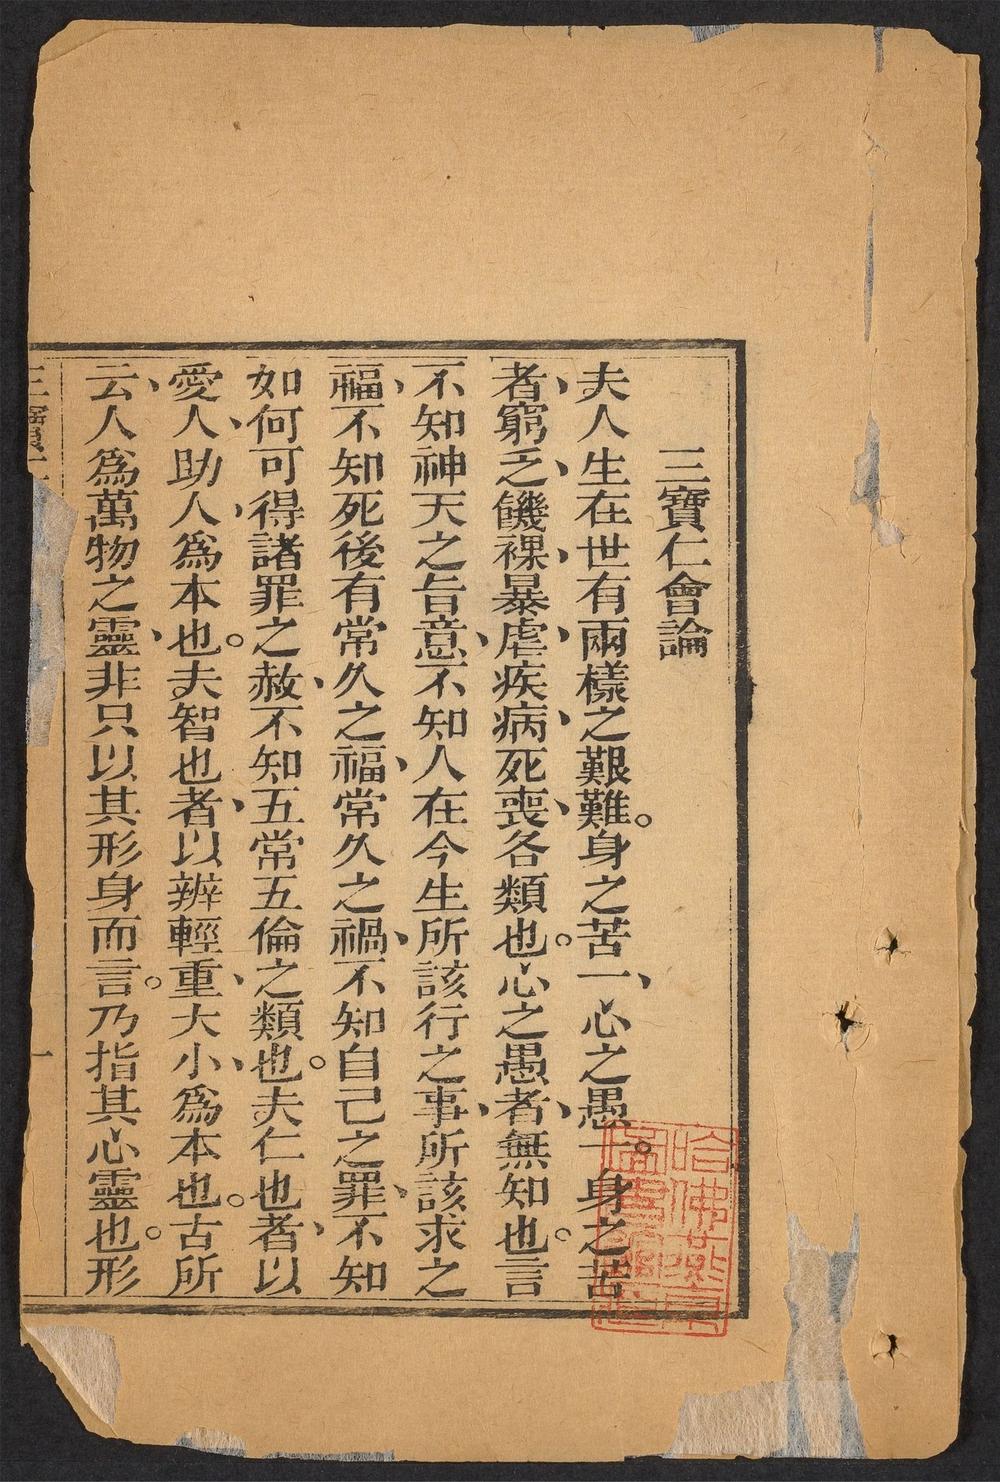 三寶仁會論
夫人生在世有兩樣之艱難。身之苦一、心之愚一。身之苦
者、窮乏、饑裸、暴虐、疾病、死喪、各類也。心之愚者、無知也。言
不知神天之旨意、不知人在今生所該行之事、所該求之
福、不知死後有常久之福、常久之禍、不知自己之罪、不知
如何可得諸罪之赦、不知五常五倫之類也。夫仁也者、以
愛人、助人、為本也。夫智也者、以辨輕重、大小、為本也。古所
云、人為萬物之靈、非只以其形身而言。乃指其心靈也。形
一
哈佛燕京
圖書館